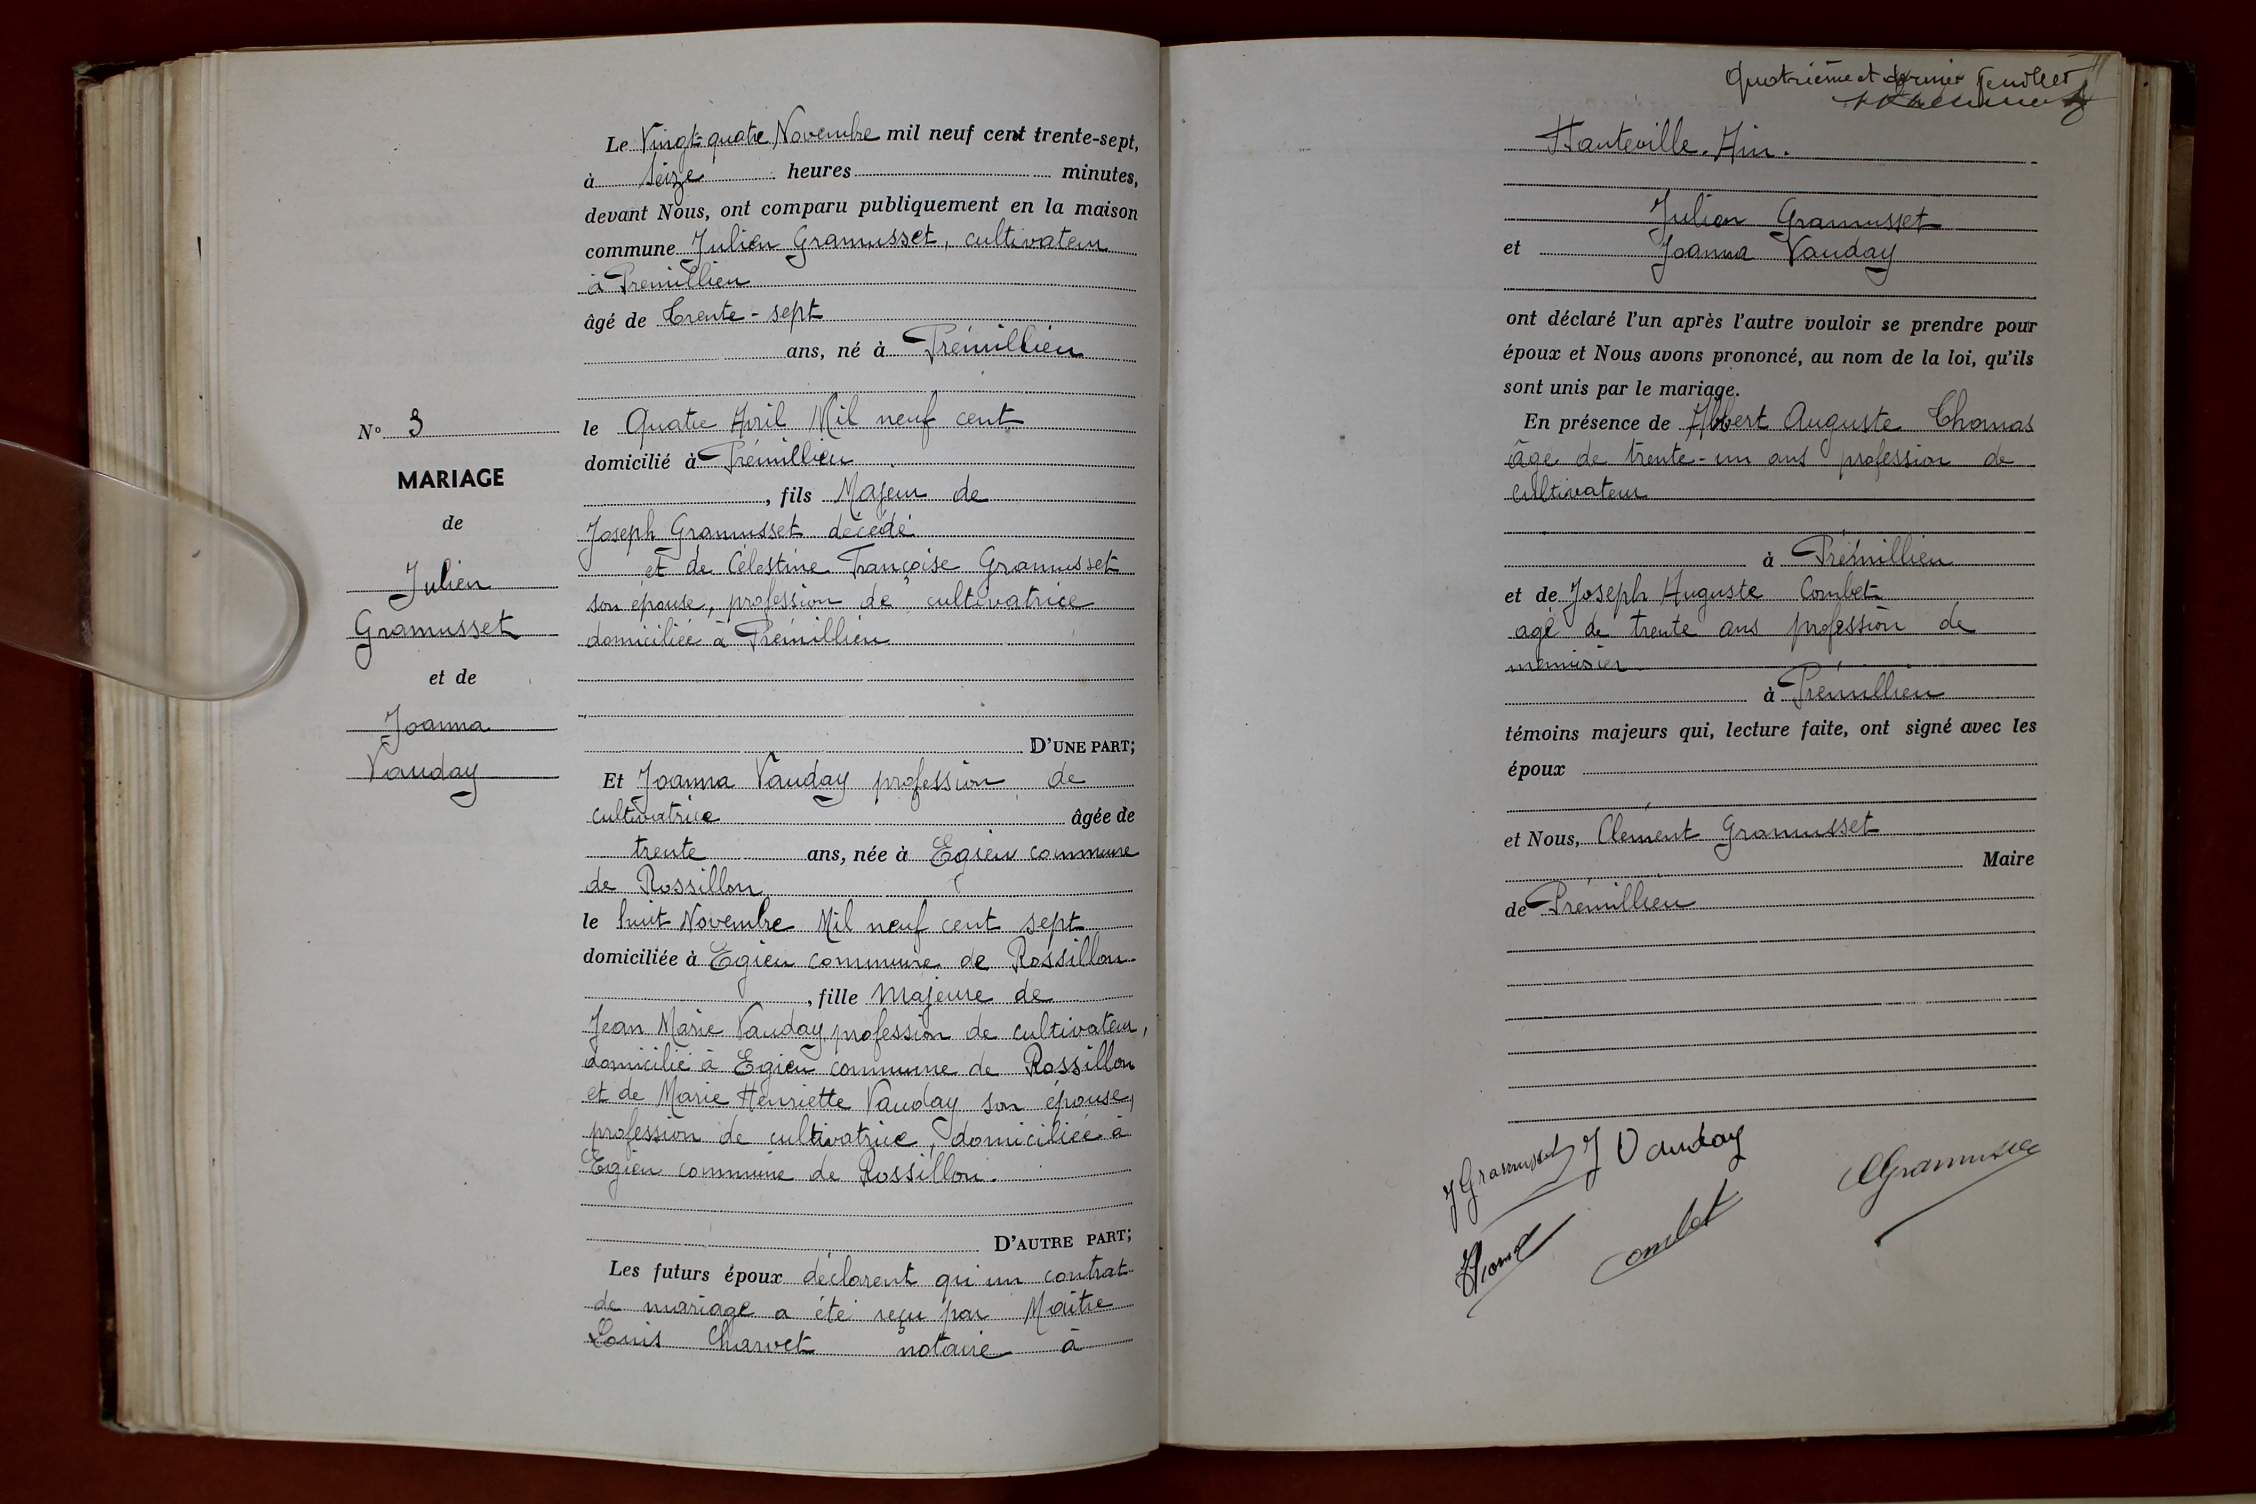 N° 3
MARIAGE
de
Julien
Gramusset
et de
Joanna
Vauday
Le Vingt-quatre Novembre mil neuf cent trente-sept,
à seize heures minutes,
devant Nous, ont comparu publiquement en la maison
commune Julien Gramusset, cultivateur
à Prémillieu
âgé de Trente-sept
ans, né à Prémillieu
le Quatre Avril Mil neuf cent
domicilié à Prémillieu
, fils Majeur de
Joseph Gramusset décédé
et de Célestine Françoise Gramusset
son épouse, profession de cultivatrice
domiciliée à Prémillieu
D'UNE PART;
Et Joanna Vauday profession de
cultivatrice âgée de
trente ans, née à Egieu commune
de Rossillon
le huit Novembre Mil neuf cent sept
domiciliée à Egieu commune de Rossillon
, fille Majeure de
Jean Marie Vauday, profession de cultivateur,
domicilié à Egieu commune de Rossillon
et de Marie Henriette Vauday son épouse,
profession de cultivatrice, domiciliée à
Egieu commune de Rossillon.
D'AUTRE PART;
Les futurs époux déclarent qu'un contrat
de mariage a été reçu par Maître
Louis Charvet notaire à
Quatrième et dernier feuillet
Hauteville. Ain.
Julien Gramusset
et Joanna Vauday
ont déclaré l'un après l'autre vouloir se prendre pour
époux et Nous avons prononcé, au nom de la loi, qu'ils
sont unis par le mariage.
En présence de Albert Auguste Thomas
âgé de trente-un ans profession de
cultivateur
à Prémillieu
et de Joseph Auguste Combet
agé de trente ans profession de
menuisier
à Prémillieu
témoins majeurs qui, lecture faite, ont signé avec les
époux
et Nous, Clément Gramusset
Maire
de Prémillieu
J Gramusset J Vauday
CGramusset
Combet